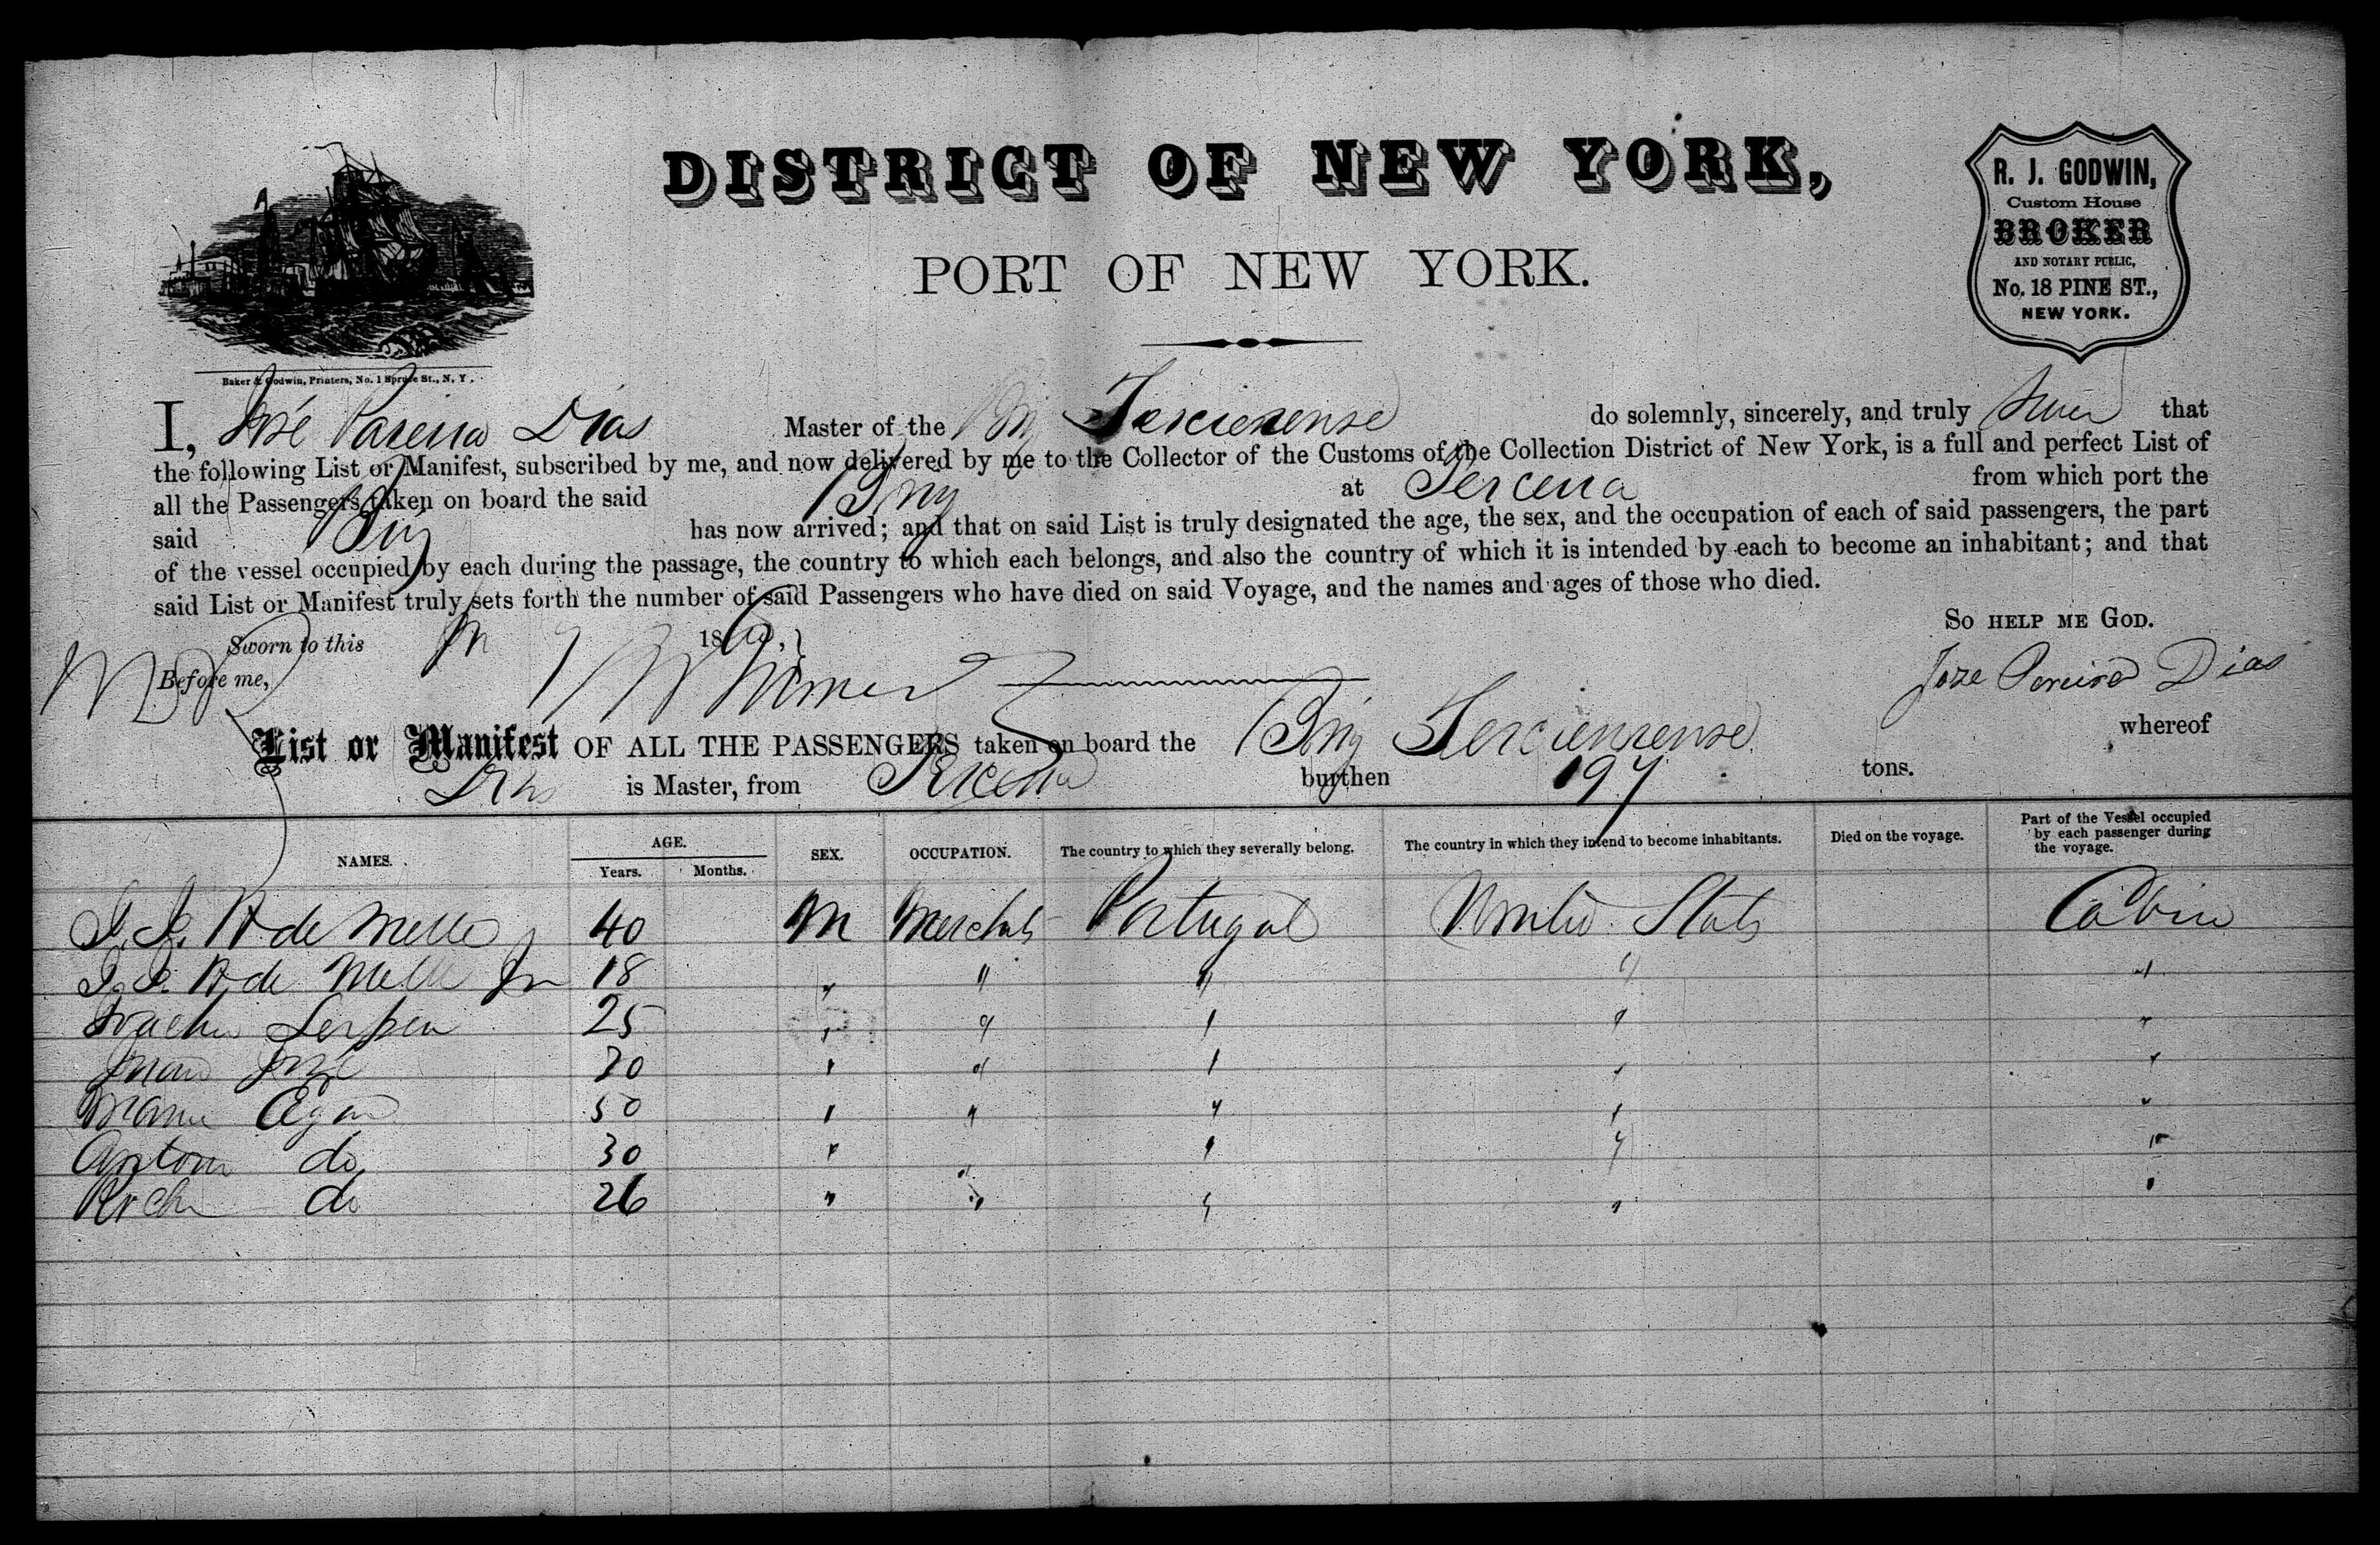 DISTRICT OF NEW YORK,
PORT OF NEW YORK.
R. J. GODWIN,
Custom House
BROKER
AND NOTARY PUBLIC,
No. 18 PINE ST.,
NEW YORK.
Baker & Godwin, Printers, No. 1 Spruce St., N. Y.
I, José Pareira Dias Master of the Brig Terceirense do solemnly, sincerely, and truly swear that
the following List or Manifest, subscribed by me, and now delivered by me to the Collector of the Customs of the Collection District of New York, is a full and perfect List of
all the Passengers taken on board the said Brig at Terceira from which port the
said Brig has now arrived; and that on said List is truly designated the age, the sex, and the occupation of each of said passengers, the part
of the vessel occupied by each during the passage, the country to which each belongs, and also the country of which it is intended by each to become an inhabitant; and that
said List or Manifest truly sets forth the number of said Passengers who have died on said Voyage, and the names and ages of those who died.
So HELP ME GOD.
Sworn to this 186
Before me,
Joze Pereira Dias
List or Manifest OF ALL THE PASSENGERS taken on board the Brig Terceirense whereof
Dias is Master, from Terceira burthen 197 tons.
NAMES. AGE. SEX. OCCUPATION. The country to which they severally belong. The country in which they intend to become inhabitants. Died on the voyage. Part of the Vessel occupied by each passenger during the voyage.
Years. Months.
de Mello 40 M Merchants Portugal United States Cabin
de Mello Jr 18 " " " " "
25 " " " " "
José 20 " " " " "
50 " " " " "
Antoni do 30 " " " " "
do 26 " " " " "